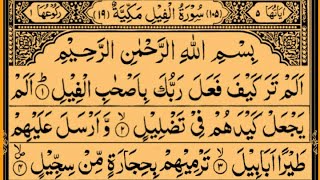 اٰيَاتُهَا ٥ (١٠٥) سُوْرَةُ الْفِيْلِ مَكِّيَّةٌ (١٩) رُكُوْعُهَا ١
بِسْمِ اللّٰهِ الرَّحْمٰنِ الرَّحِيْمِ
اَلَمْ تَرَ كَيْفَ فَعَلَ رَبُّكَ بِاَصْحٰبِ الْفِيْلِ ۝١ اَلَمْ
يَجْعَلْ كَيْدَهُمْ فِيْ تَضْلِيْلٍ ۝٢ وَّاَرْسَلَ عَلَيْهِمْ
طَيْرًا اَبَابِيْلَ ۝٣ تَرْمِيْهِمْ بِحِجَارَةٍ مِّنْ سِجِّيْلٍ ۝٤